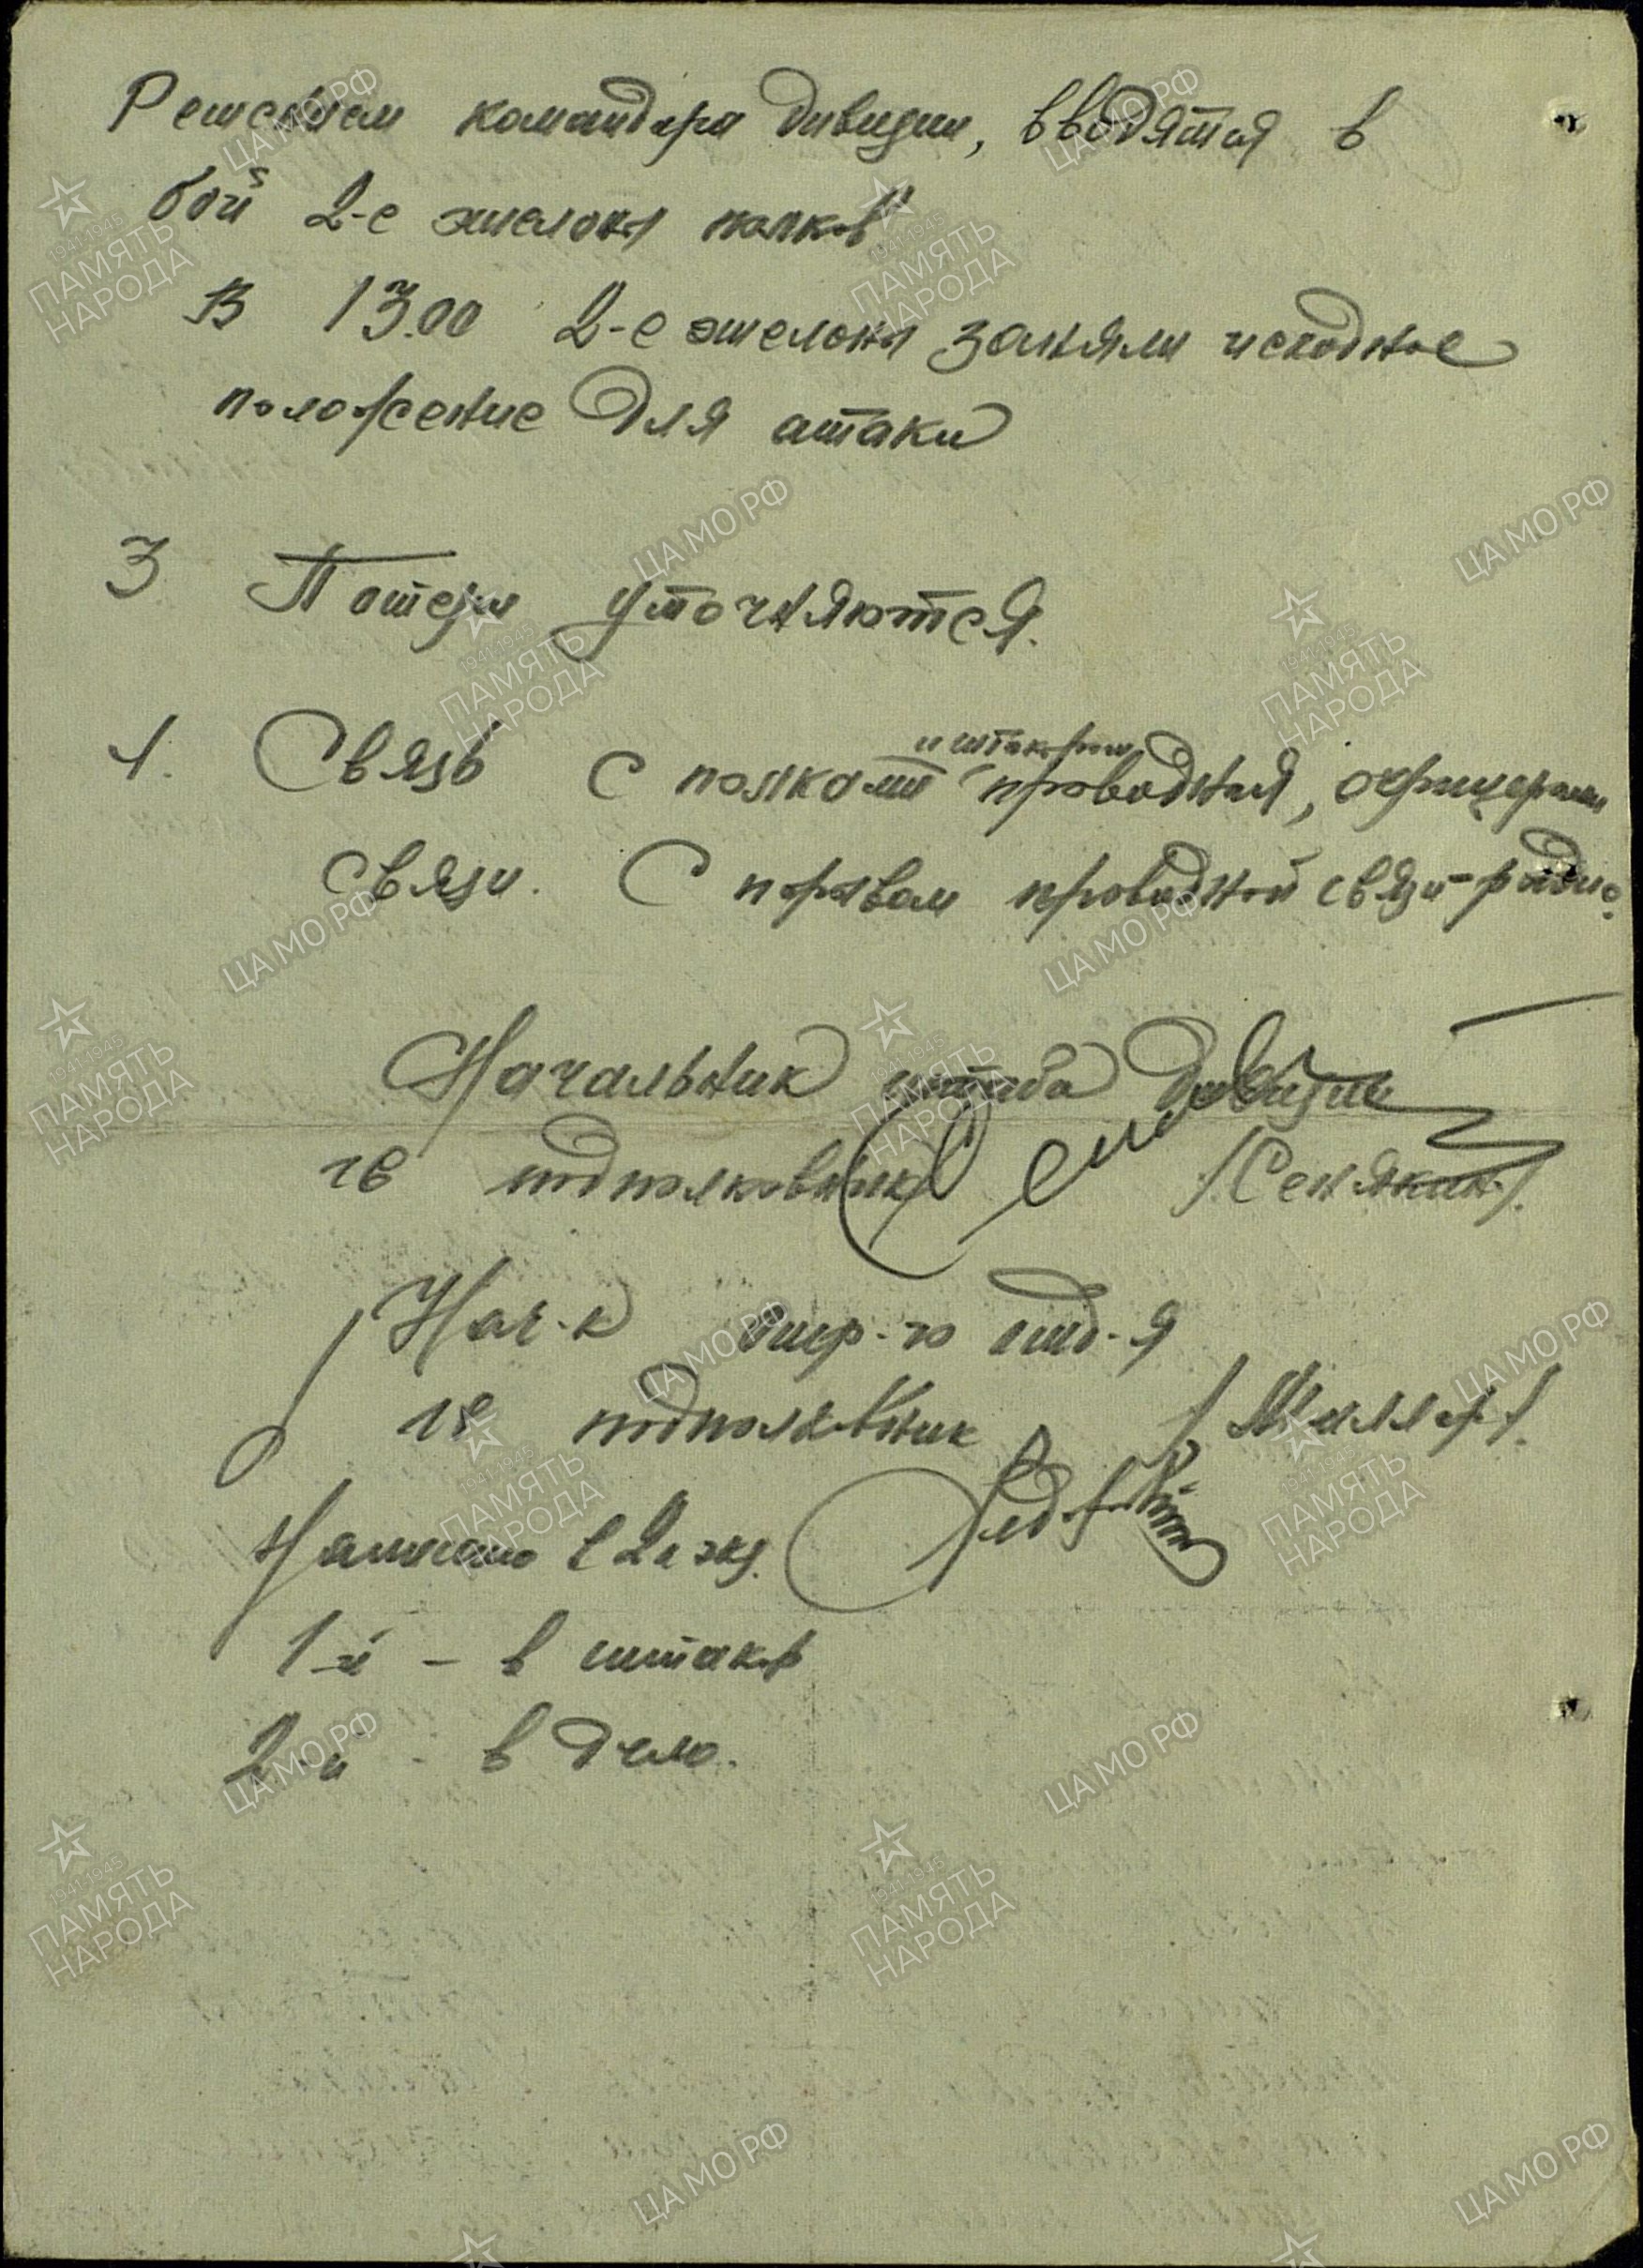 Решением командира дивизии, вводятся в
бой 2-е эшелоны полков
В 13.00 2-е эшелоны заняли исходное
положение для атаки
3 Потери уточняются.
4. Связь с полками и штакором проводная, офицерами
связи. С порывом проводной связи - радио.
Начальник штаба дивизии
гв подполковник /Сенякин/.
Нач-к опер-го отд-я
гв подполковник /Миллер/.
Написано в 2х экз.
1-й - в штакор
2-й - в дело.
ЦАМО РФ
1941-1945
ПАМЯТЬ
НАРОДА